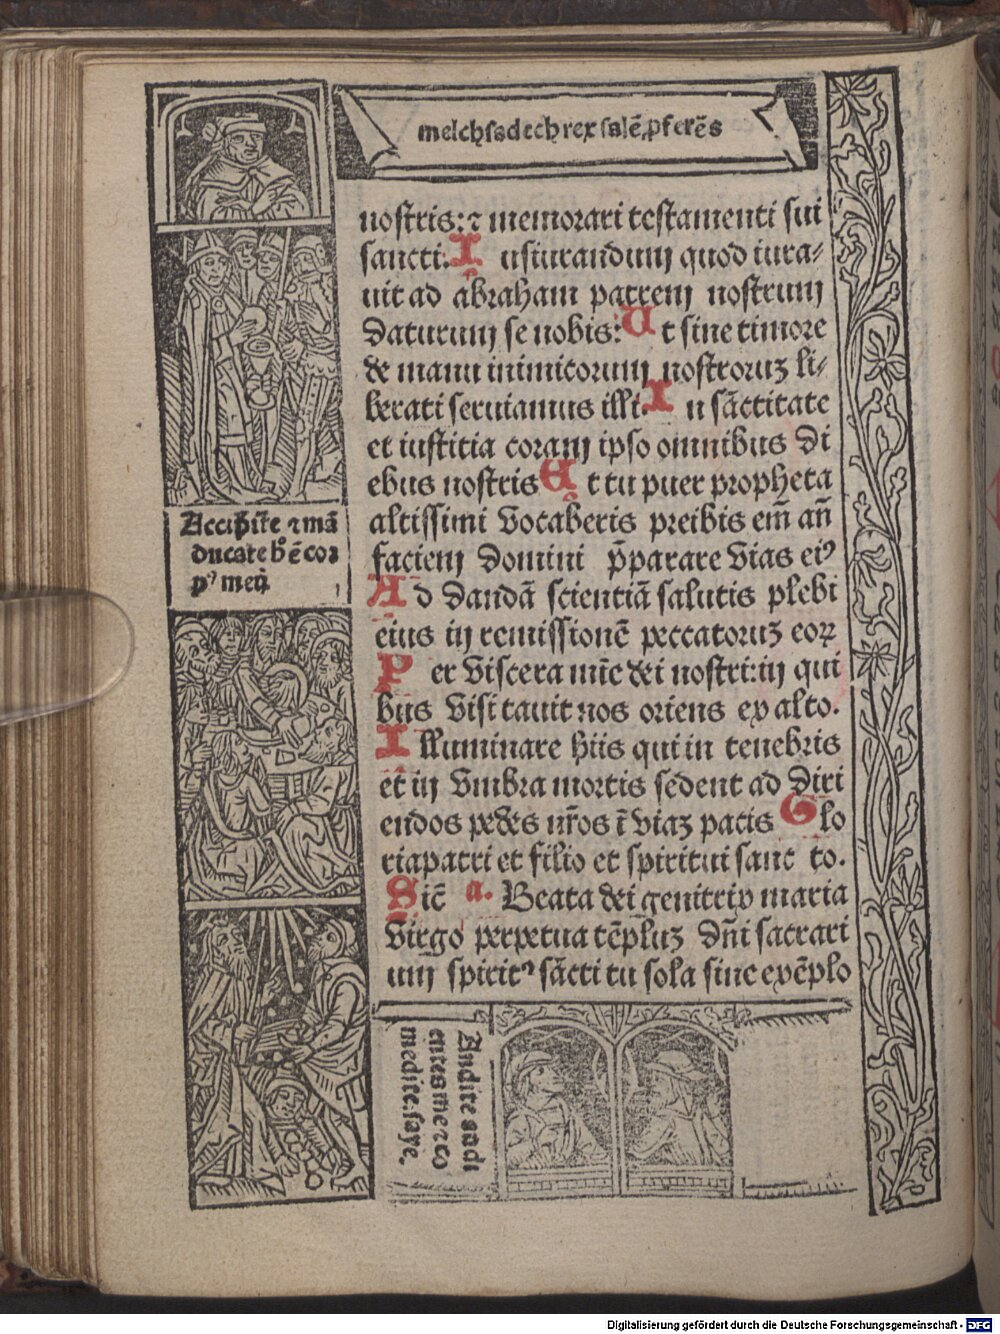 melchsadech rex salē ꝓferēs
nostris: ⁊ memorari testamenti sui
sancti. Iusiurandum quod iura-
uit ad abraham patrem nostrum
daturum se nobis: Ut sine timore
de manu inimicorum nostroruꝫ li-
berati seruiamus illi. In sāctitate
et iustitia coram ipso omnibus di
ebus nostris Et tu puer propheta
altissimi vocaberis preibis em̄ an̄
faciem domini p̄parare vias eiꝰ
Ad dandā scientiā salutis plebi
eius in remissionē peccatoruꝫ eoꝝ
Per viscera mīe dei nostri: in qui
bus visitauit nos oriens ex alto.
Illuminare hiis qui in tenebris
et in vmbra mortis sedent ad diri
endos pedes nr̄os ī viaꝫ pacis Glo
ria patri et filio et spiritui sanc to.
Sic̄ a. Beata dei genitrix maria
virgo perpetua tēpluꝫ dn̄i sacrari
um spiritꝰ sācti tu sola sine exēplo
Accipite ⁊ mā
ducate hͦ ē cor
pꝰ meū
Audite audi
entes me ⁊ co
medite: saye.
Digitalisierung gefördert durch die Deutsche Forschungsgemeinschaft - DFG